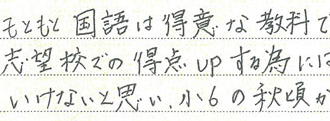 もともと国語は得意な教科で
志望校での得点upする為には
いけないと思い、小6の秋頃か